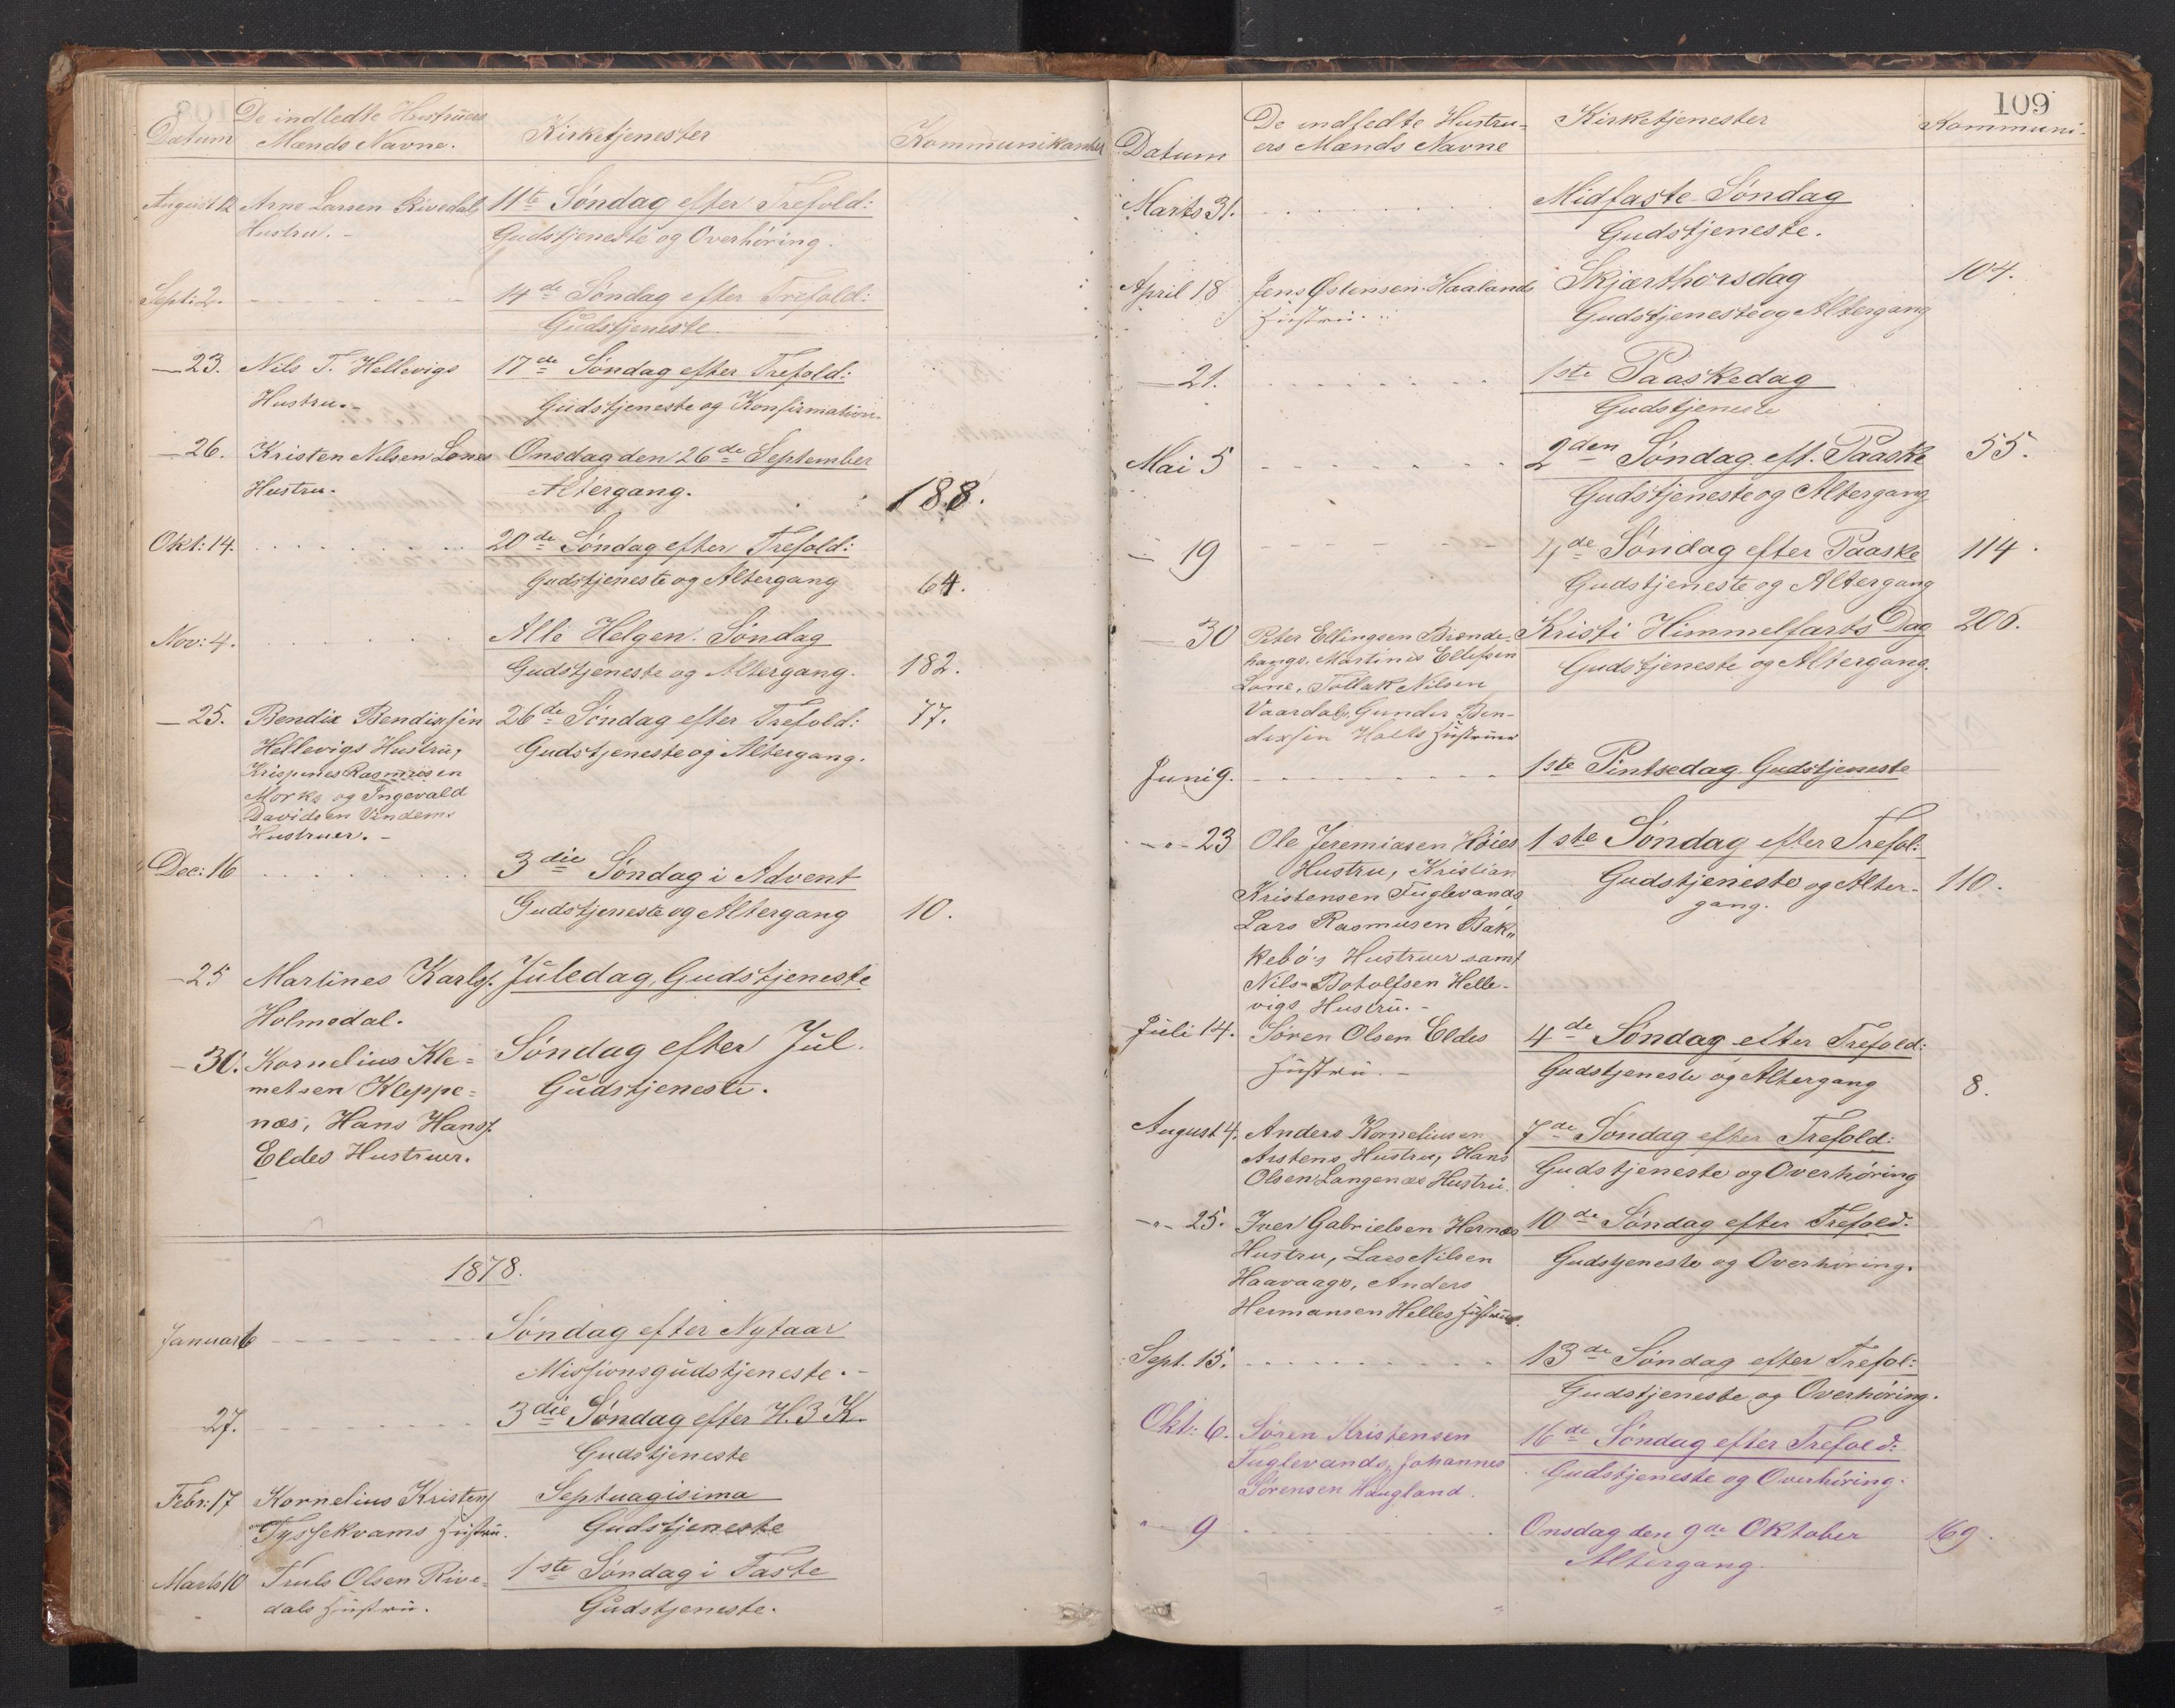 De indledte Hustruers
Datum Mænds Navne. Kirketjenester Kommunikanter
August 12 Arne Larsen Rivedals 11te Søndag efter Trefold:
Hustru. - Gudstjeneste og Overhöring.
Sept: 2. 14de Søndag efter Trefold:
Gudstjeneste
— 23. Nils T. Hellevigs 17de Søndag efter Trefold:
Hustru. - Gudstjeneste og Konfirmation.
— 26. Kristen Nilsen Lones Onsdag den 26de September
Hustru. Altergang. 188.
Okt: 14. 20de Søndag efter Trefold:
Gudstjeneste og Altergang 64.
Nov: 4. Alle Helgen. Søndag
Gudstjeneste og Altergang. 182.
— 25. Bendix Bendixsen 26de Søndag efter Trefold: 77.
Hellevigs Hustru, Gudstjeneste og Altergang.
Krispines Rasmusen
Morks og Ingevald
Davidsen Vindems
Hustruer. -
Dec: 16 3die Søndag i Advent
Gudstjeneste og Altergang 10.
— 25 Martines Karls. Juledag, Gudstjeneste
Holmedal.
— 30. Kornelius Kle= Søndag efter Jul.
metsen Kleppe= Gudstjeneste.
næs, Hans Hans.
Eldes Hustruer.
1878.
Januar 6 Søndag efter Nytaar
Missionsgudstjeneste. -
27. 3die Søndag efter H. 3 K.
Gudstjeneste
Febr: 17 Kornelius Kristens Septuagisima
Tyssekvams Hustru. Gudstjeneste
Marts 10 Truls Olsen Rive= 1ste Søndag i Faste
dals Hustru. Gudstjeneste.
109
De indledte Hustru= Kirketjenester Kommuni-
Datum ers Mænds Navne
Marts 31. Midfaste Søndag
Gudstjeneste.
April 18 Jens Østensen Haalands Skjærthorsdag 104.
Hustru. Gudstjeneste og Altergang
— 21. 1ste Paaskedag
Gudstjeneste
Mai 5 2den Søndag eft. Paaske 55.
Gudstjeneste og Altergang
— 19 4de Søndag efter Paaske 114.
Gudstjeneste og Altergang
— 30 Peter Ellingsen Brænde- Kristi Himmelfarts Dag 206.
haugs, Martinis Ellefsen Gudstjeneste og Altergang.
Lone, Tollak Nilsen
Vaardals, Gunder Ben-
dixsen Holts Hustruer
Juni 9. 1ste Pintsedag Gudstjeneste
-"- 23 Ole Jeremiasen Höies 1ste Søndag efter Trefol:
Hustru, Kristian Gudstjeneste og Alter- 110.
Kristensen Fuglevands gang.
Lars Rasmusen Bak"
kebö's Hustruer samt
Nils Botolfsen Helle-
vigs Hustru. -
Juli 14. Søren Olsen Eldes 4de Søndag efter Trefold:
Hustru. - Gudstjeneste og Altergang 8.
August 4. Anders Korneliusen 7de Søndag efter Trefold:
Arstens Hustru, Hans Gudstjeneste og Overhöring
Olsen Langenæs Hustru.
-"- 25. Iver Gabrielsen Hernæs 10de Søndag efter Trefold:
Hustru, Lars Nilsen Gudstjeneste og Overhöring.
Haavaags, Anders
Hermansen Helles Hustruer.
Sept. 15. 13de Søndag efter Trefol:
Gudstjeneste og Overhöring.
Okt: 6. Søren Kristensen 16de Søndag efter Trefold:
Fuglevands, Johannes Gudstjeneste og Overhöring.
Sørensen Haugland.
" 9 Onsdag den 9de Oktober 169.
Altergang.